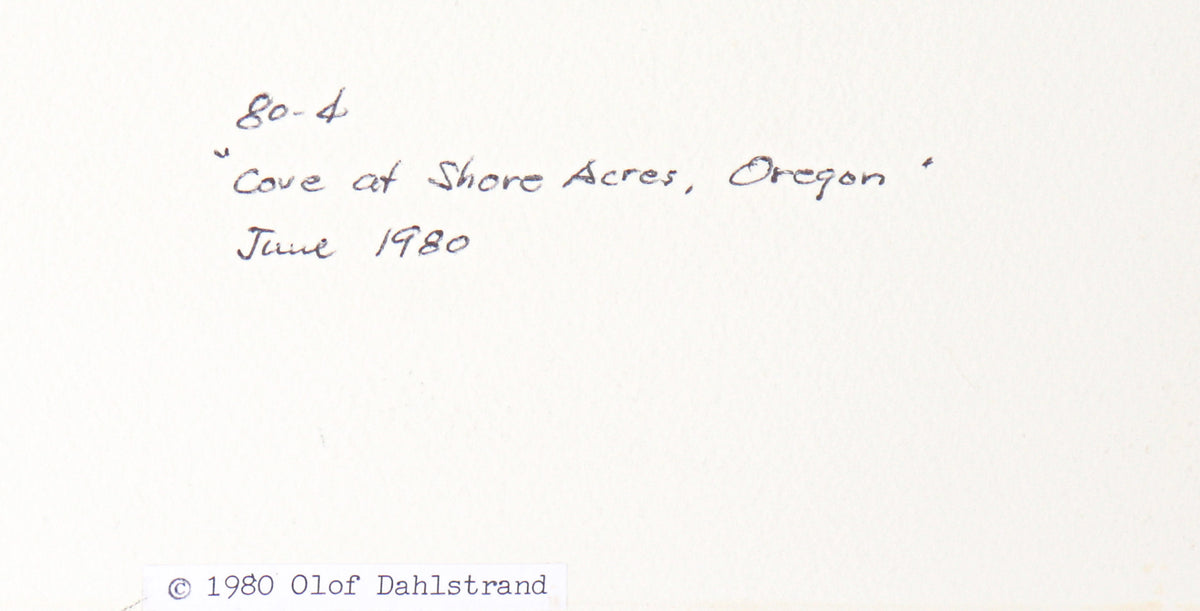 80-4
"Cove at Shore Acres, Oregon"
June 1980
© 1980 Olof Dahlstrand